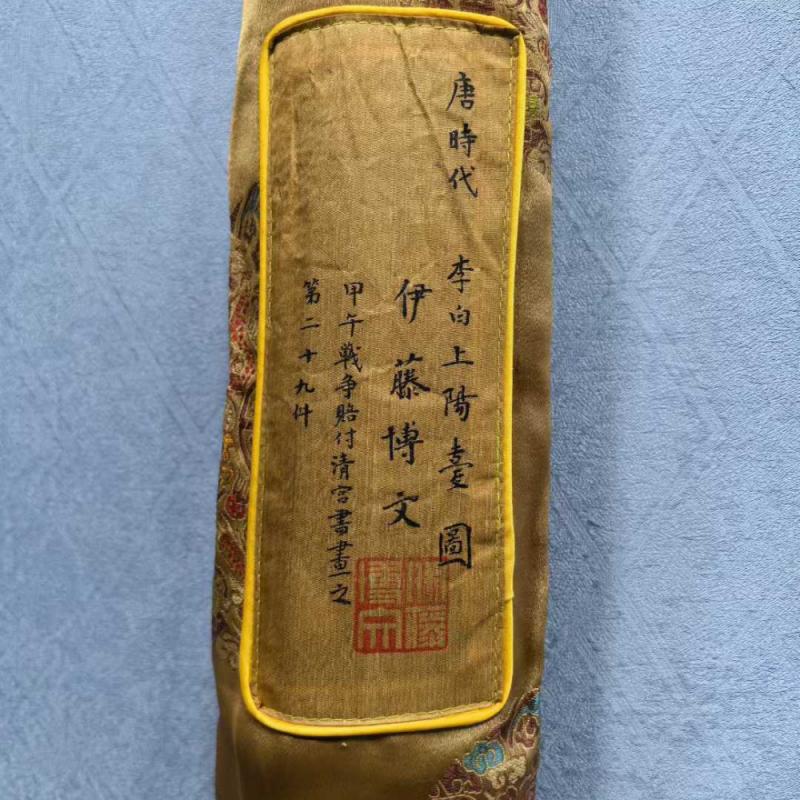 唐時代 李白上陽臺圖
伊藤博文
甲午戰争賠付清宮書畫之
第二十九件